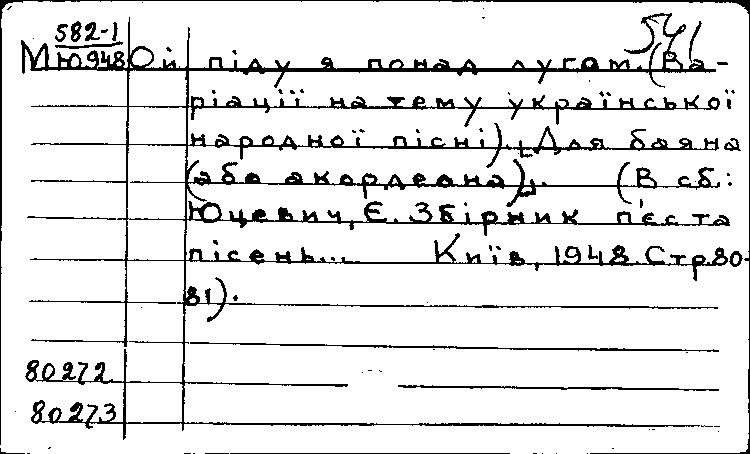 582-1
541
МЮ948 Ой піду я понад лугом. (Ва-
ріації на тему української
народної пісні). [Для баяна
(або акордеона)]. (В сб.:
Юцевич, Є. Збірник п'єс та
пісень... Київ, 1948. Стр. 80-
81).
80272
80273